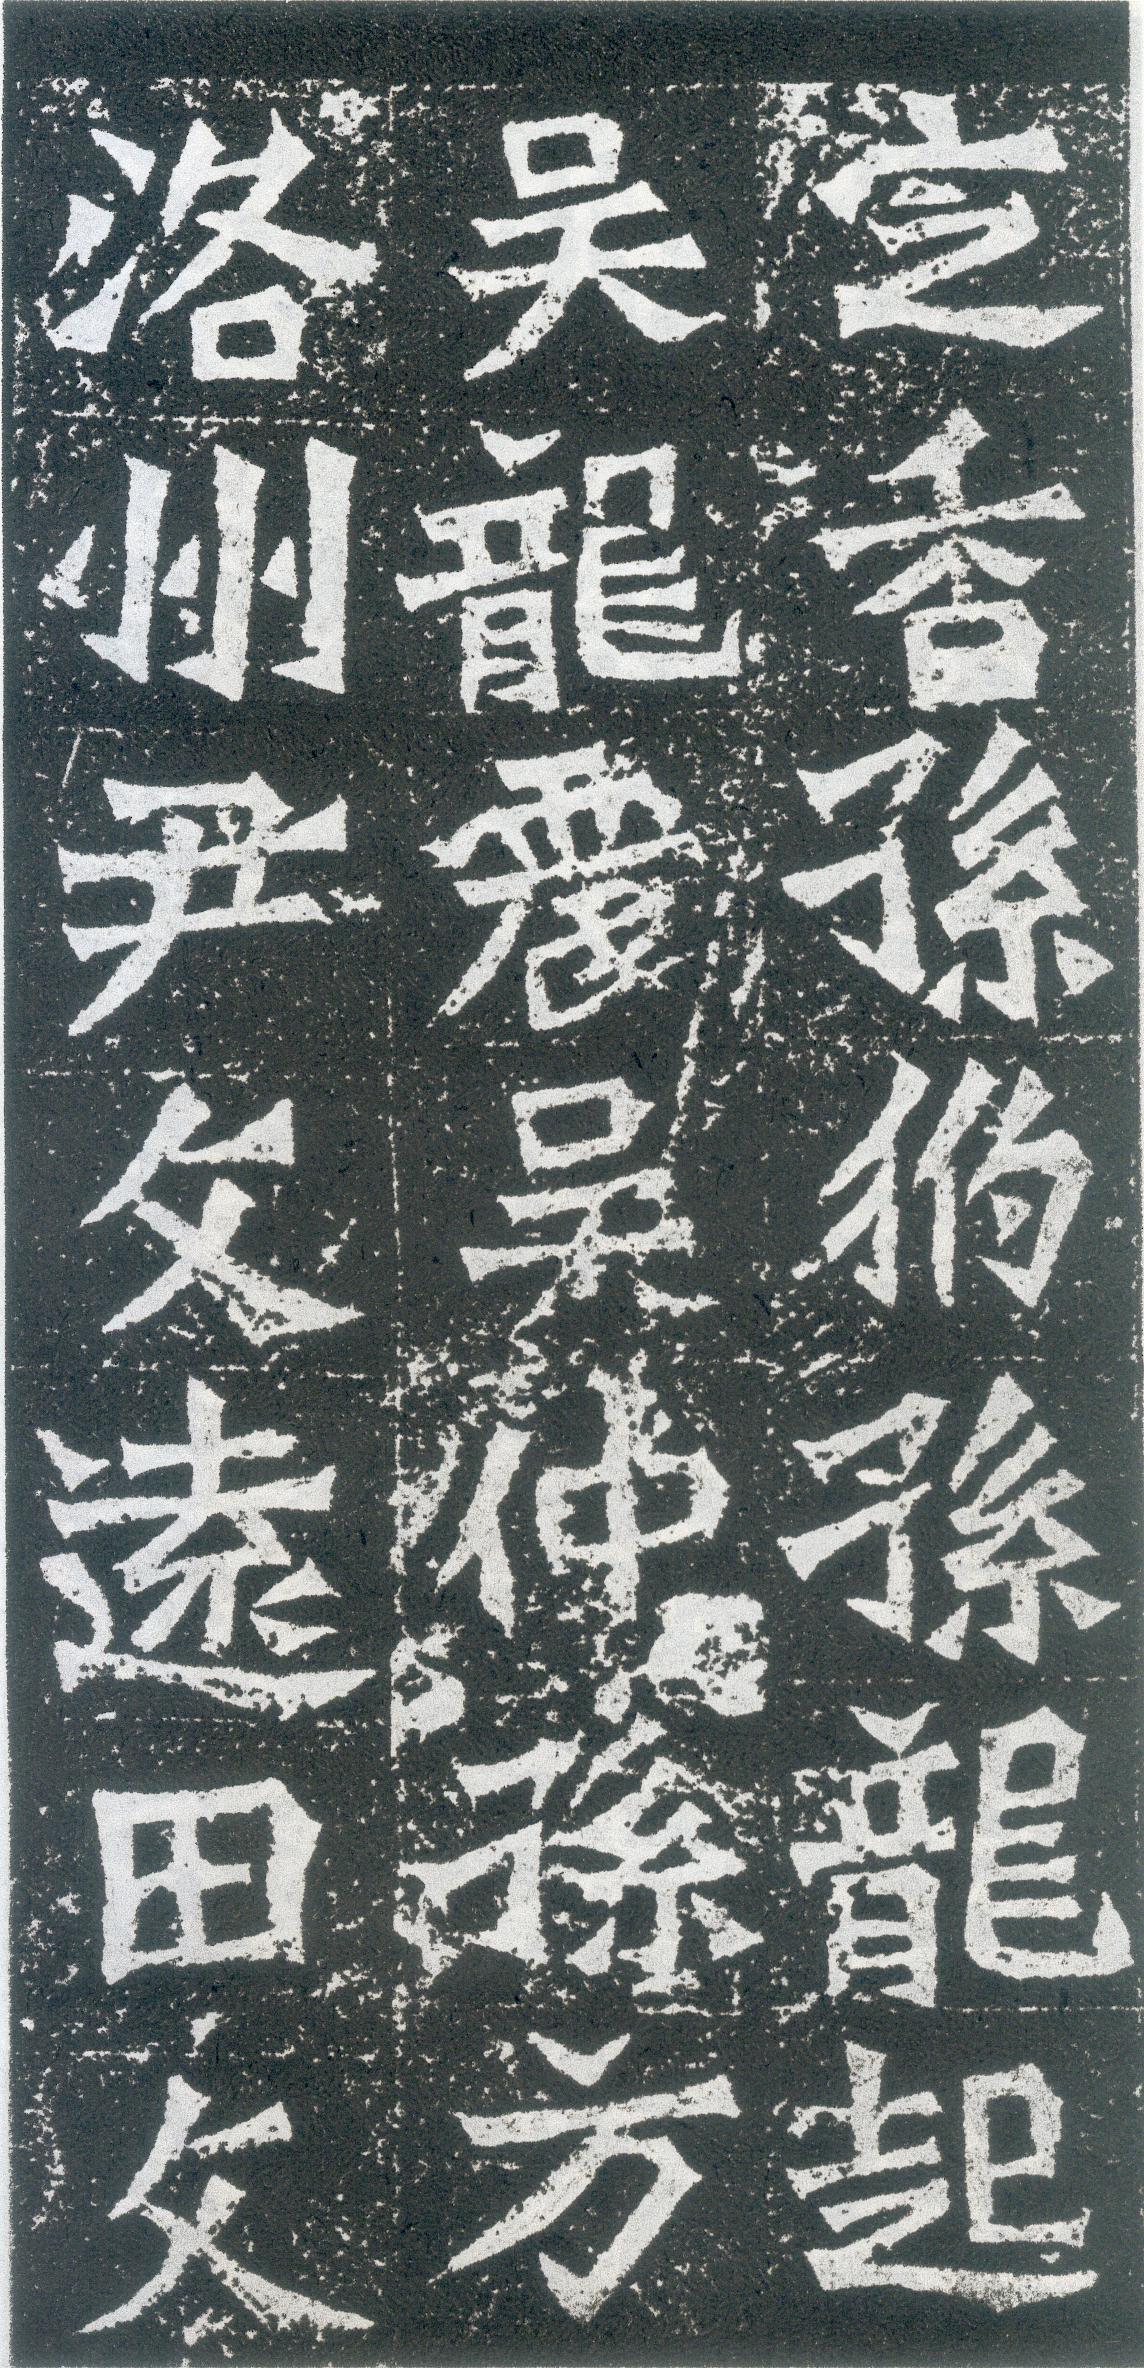 定孫孫龍起
吳龍震吳仲孫方
洛州尹文遠田文